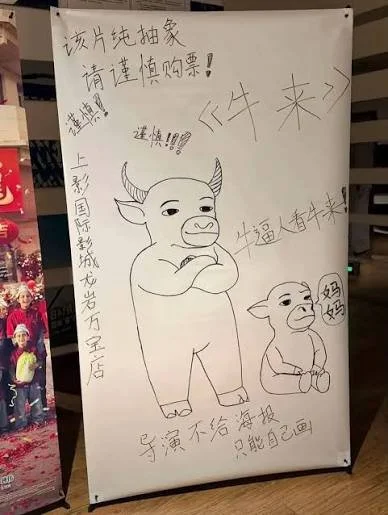 该片纯抽象
请谨慎购票！
谨慎！！
谨慎！！！
《牛来》
上影国际影城龙岩万宝店
牛逼人看牛来！
妈妈
妈妈
导演不给海报
只能自己画